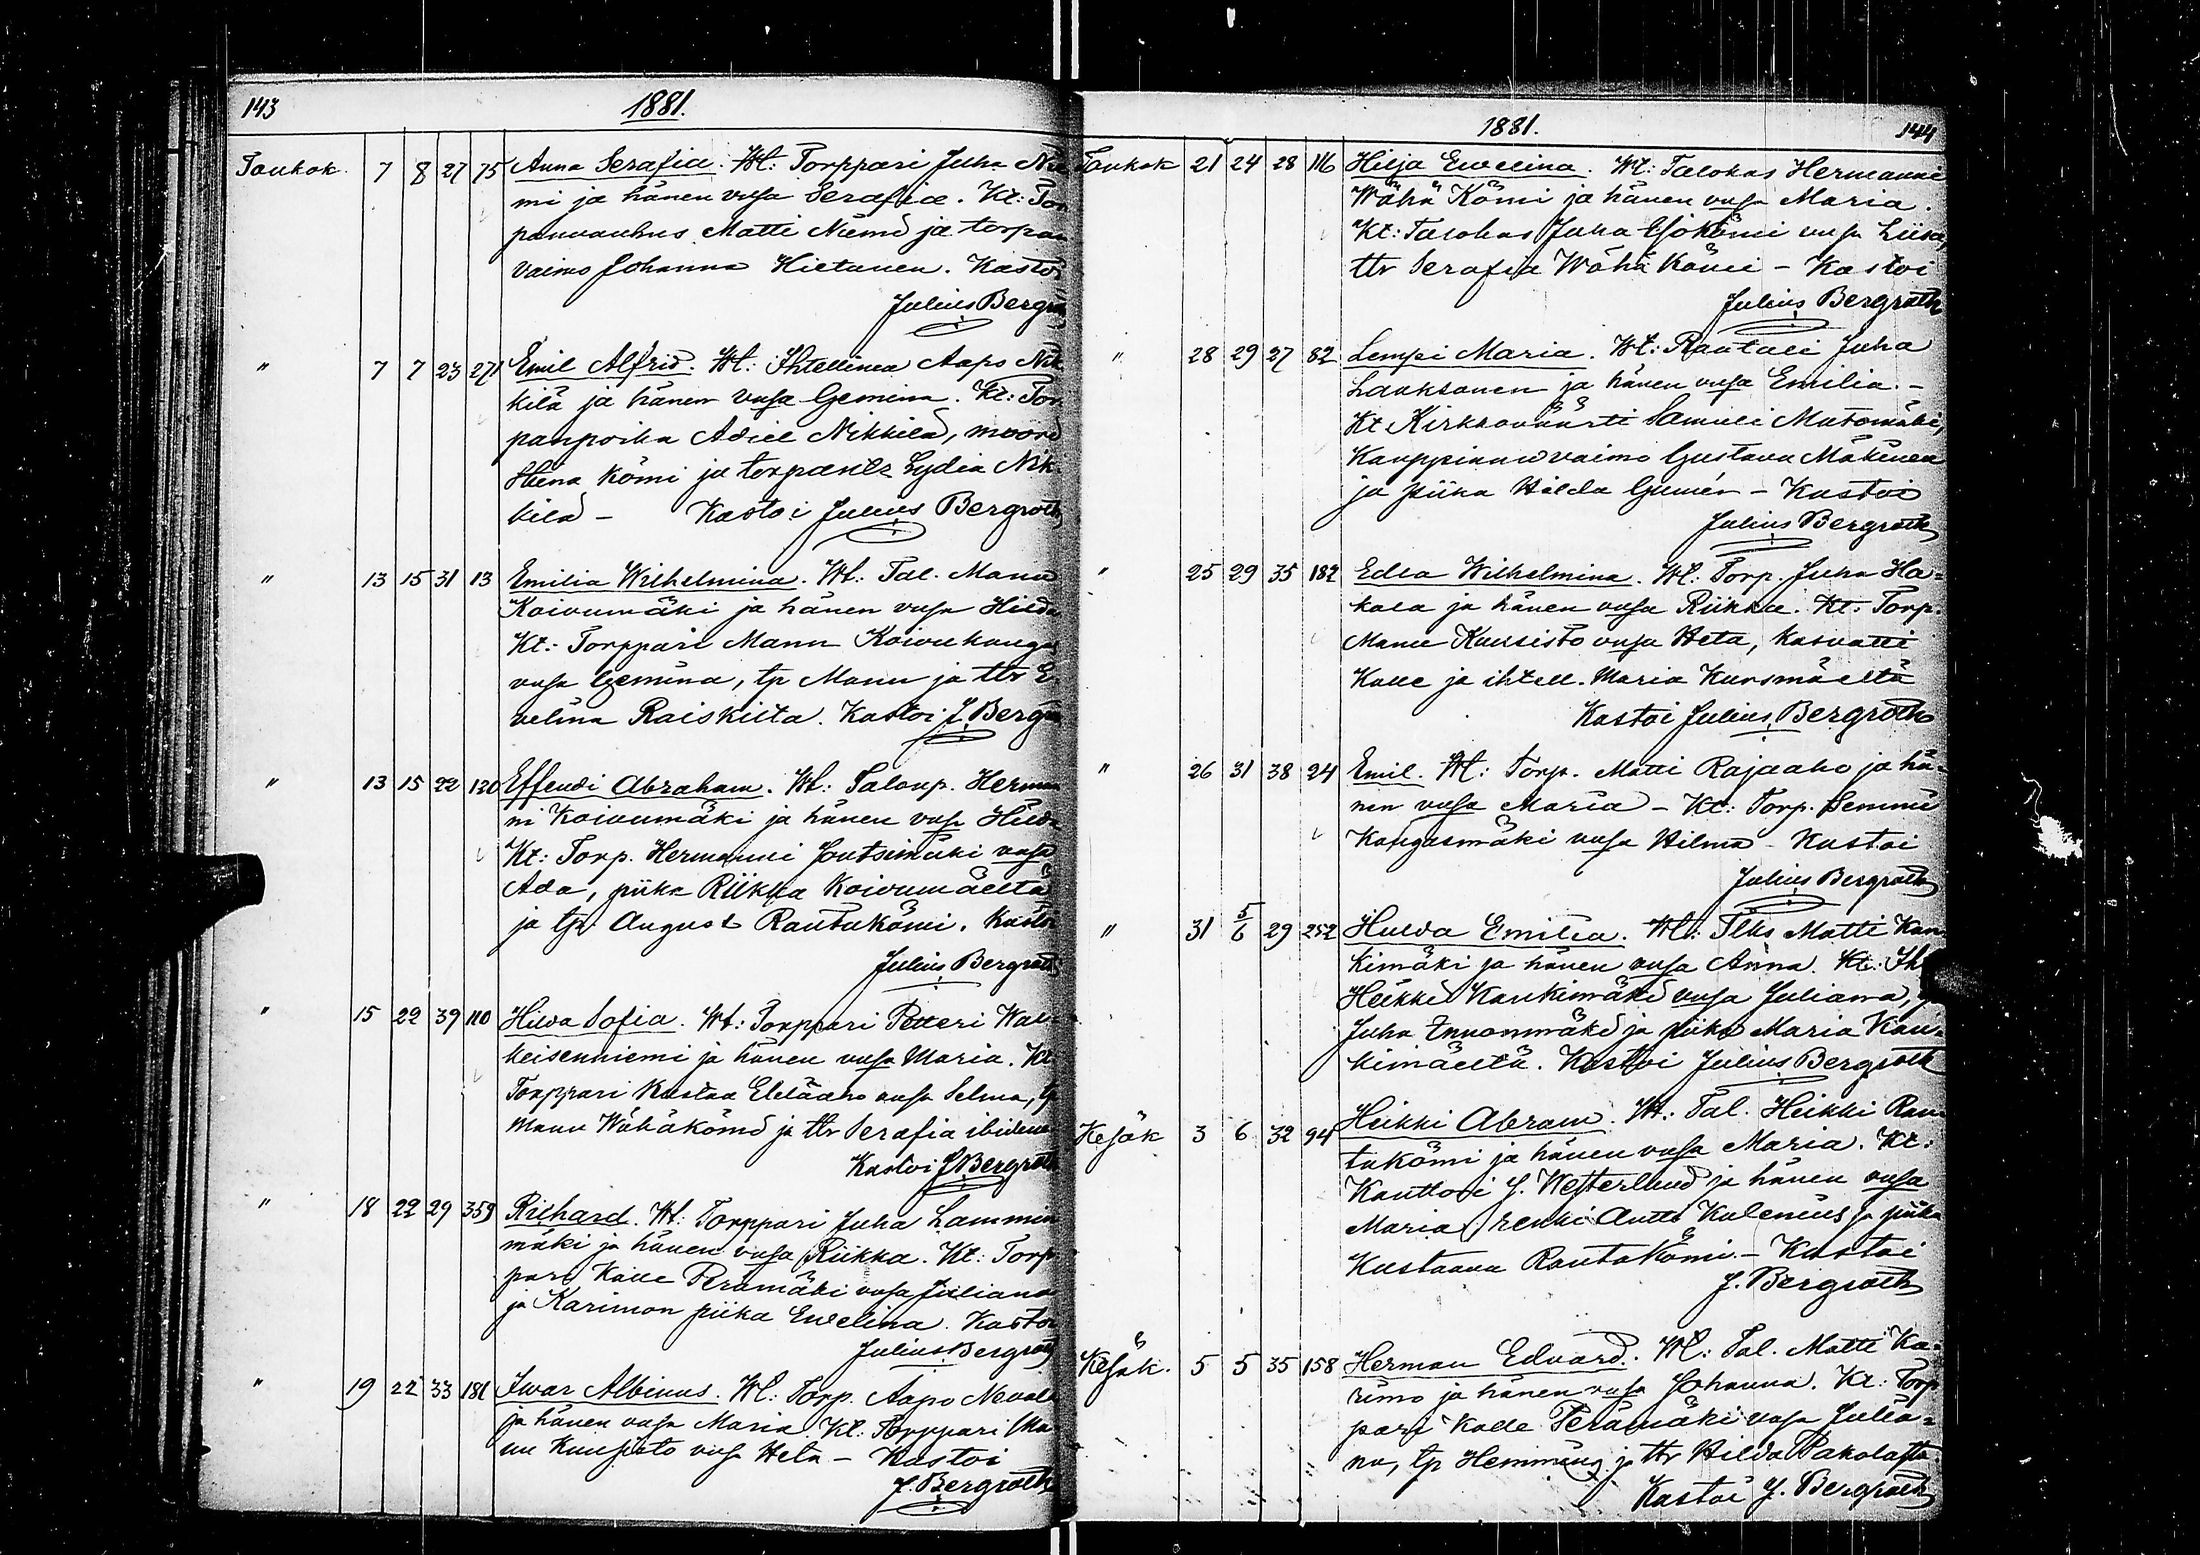 143
1881.
Toukok. 7 8 27 75 Anna Serafia. Wt: Torppari Juha Nie
mi ja hänen vmsa Serafia. Kt: Tor
panvanhus Matti Niemi ja torpan
vaimo Johanna Hietanen. Kastoi
Julius Bergro
" 7 7 23 271 Emil Alfrid. Wt: Ihtellinen Aapo Nik
kilä ja hänen vmsa Gemina. Kt: Tor
panpoika Adiel Nikkilä, muori
Stina Kömi ja torpantr Lydia Nik
kilä - Kastoi Julius Bergroth
" 13 15 31 13 Emilia Wilhelmina. Wt: Tal. Manu
Koivumäki ja hänen vmsa Hilda
Kt: Torppari Manu Koivukangas
vmsa Gemina, tp Manu ja ttr E
velina Raiskilta. Kastoi J. Bergro
" 13 15 22 130 Effendi Abraham. Wt: Talonp. Herman
ni Koivumäki ja hänen vmsa Hilda
Kt: Torp. Hermanni Joutsimäki vmsa
Ada, piika Riikka Koivumäeltä
ja tp. August Rautakömi. Kastoi
Julius Bergroth
" 15 22 39 110 Hilda Sofia. Wt: Torppari Petteri Wal
keisenniemi ja hänen vmsa Maria. Kt
Torppari Kustaa Eteläaho vmsa Selma, tp
Manu Wähäkömi ja ttr Serafia ibidem
Kastoi J. Bergroth
" 18 22 29 359 Richard. Wt: Torppari Juha Lammin
mäki ja hänen vmsa Riikka. Kt: Torp
pari Kalle Perämäki vmsa Juliana
ja Karimon piika Ewelina. Kastoi
Julius Bergroth
" 19 22 33 181 Iwar Albinus. Wt: Torp. Aapo Nevala
ja hänen vmsa Maria. Kt: Torppari Ma
nu Kuusisto vmsa Heta - Kastoi
J. Bergroth
1881. 144
Toukok 21 24 28 116 Hilja Ewelina. Wt: Talokas Hermanni
Wähä Kömi ja hänen vmsa Maria.
Kt: Talokas Juha Yökömi vmsa Liisa,
ttr Serafia Wähä Kömi - Kastoi
Julius Bergroth
" 28 29 27 82 Lempi Maria. Wt: Räätäli Juha
Lauksonen ja hänen vmsa Emilia. -
Kt Kirkkoväärti Samuli Mutomäki,
Kauppianw vaimo Gustava Mäkinen
ja piika Hilda Gumén - Kastoi
Julius Bergroth
" 25 29 35 182 Edla Wilhelmina. Wt: Torp. Juha Ha=
kala ja hänen vmsa Riikka. Kt: Torp.
Manu Kuusisto vmsa Heta, kasvatti
Kalle ja ihtell. Maria Kuusmäeltä
Kastoi Julius Bergroth
" 26 31 38 24 Emil. Wt: Torp. Matti Rajaaho ja hä=
nen vmsa Maria - Kt: Torp. Hemmi
Kangasmäki vmsa Hilma - Kastoi
Julius Bergroth
" 31 5/6 29 252 Hulda Emilia. Wt: Tlks Matti Kan
kimäki ja hänen vmsa Anna. Kt: Iht
Heikki Kankimäki vmsa Juliana,
Juha Ennonmäki ja piika Maria Kan=
kimäeltä. Kastoi Julius Bergroth
Kesäk 3 6 32 94 Heikki Abram. Wt: Tal. Heikki Rau
takömi ja hänen vmsa Maria. Kt:
Kanttori J. Westerlund ja hänen vmsa
Maria, renki Antti Kulenius ja piika
Kustaava Rautakömi. - Kastoi
J. Bergroth
Kesäk. 5 5 35 158 Herman Edvard. Wt: Tal. Matti Ka=
rimo ja hänen vmsa Johanna. Kt: Torp
pari Kalle Perämäki vmsa Julia=
na, tp Hemming ja ttr Hilda Pakolasta.
Kastoi J. Bergroth